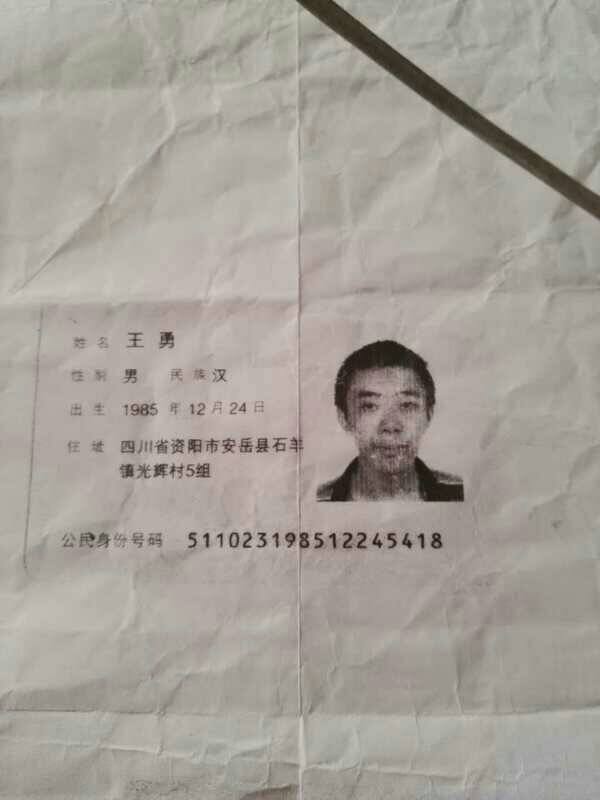 姓名 王勇
性别 男 民族 汉
出生 1985 年 12 月 24 日
住址 四川省资阳市安岳县石羊
镇光辉村5组
公民身份号码 511023198512245418